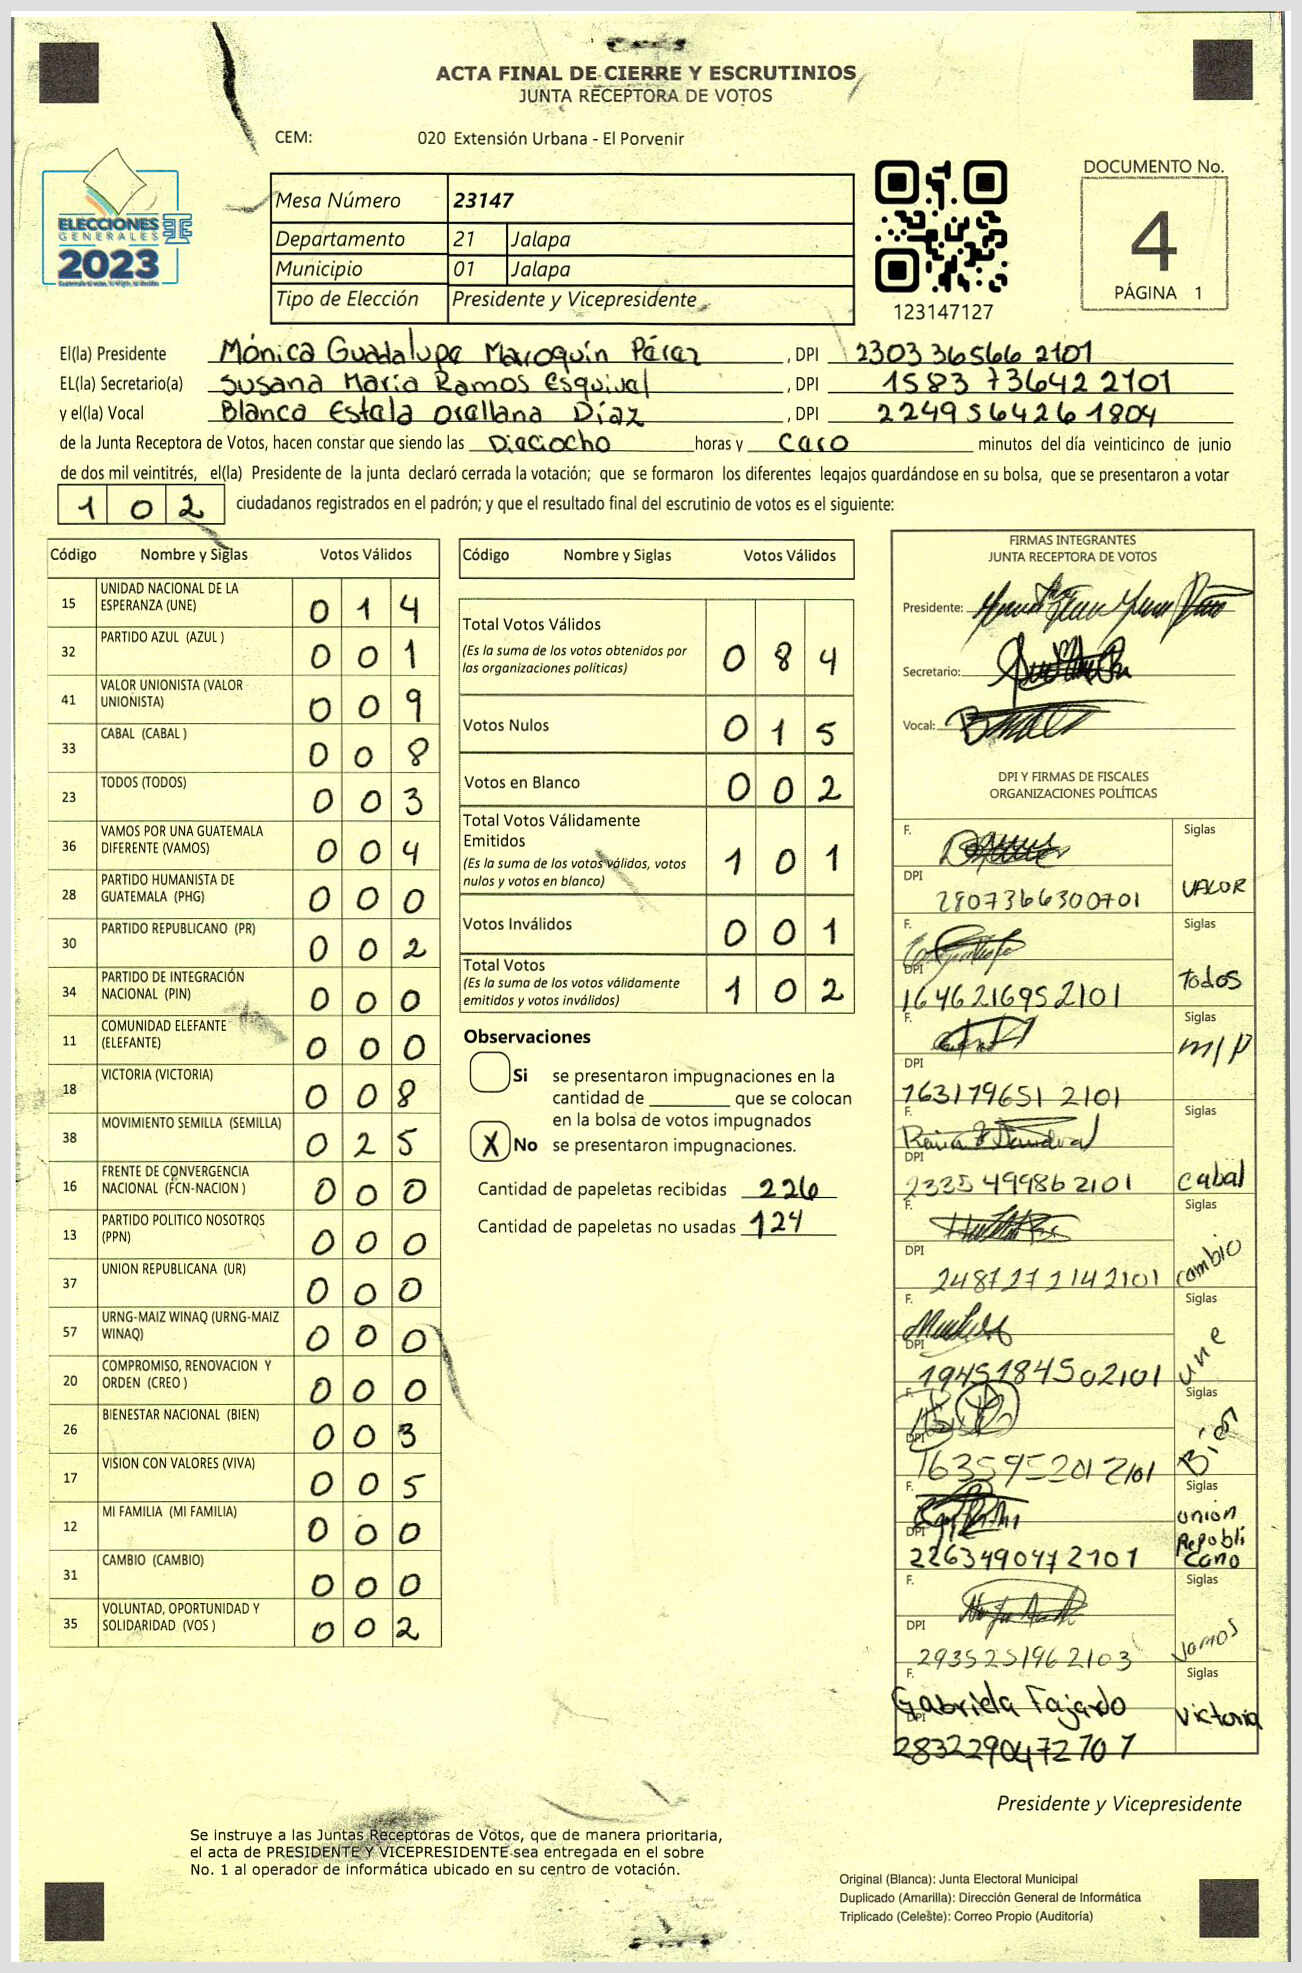 ACTA FINAL DE CIERRE Y ESCRUTINIOS
JUNTA RECEPTORA DE VOTOS
CEM: 020 Extensión Urbana - El Porvenir
ELECCIONES
GENERALES
2023
Mesa Número 23147
Departamento 21 Jalapa
Municipio 01 Jalapa
Tipo de Elección Presidente y Vicepresidente
123147127
DOCUMENTO No.
4
PÁGINA 1
El(la) Presidente Mónica Guadalupe Maroquín Pérez , DPI 2303 36566 2101
EL(la) Secretario(a) Susana María Ramos Esquivel , DPI 1583 73642 2101
y el(la) Vocal Blanca Estela Orellana Díaz , DPI 2249 56426 1804
de la Junta Receptora de Votos, hacen constar que siendo las Dieciocho horas y Cero minutos del día veinticinco de junio
de dos mil veintitrés, el(la) Presidente de la junta declaró cerrada la votación; que se formaron los diferentes legajos guardándose en su bolsa, que se presentaron a votar
102 ciudadanos registrados en el padrón; y que el resultado final del escrutinio de votos es el siguiente:
Código Nombre y Siglas Votos Válidos
15 UNIDAD NACIONAL DE LA ESPERANZA (UNE) 014
32 PARTIDO AZUL (AZUL ) 001
41 VALOR UNIONISTA (VALOR UNIONISTA) 009
33 CABAL (CABAL ) 008
23 TODOS (TODOS) 003
36 VAMOS POR UNA GUATEMALA DIFERENTE (VAMOS) 004
28 PARTIDO HUMANISTA DE GUATEMALA (PHG) 000
30 PARTIDO REPUBLICANO (PR) 002
34 PARTIDO DE INTEGRACIÓN NACIONAL (PIN) 000
11 COMUNIDAD ELEFANTE (ELEFANTE) 000
18 VICTORIA (VICTORIA) 008
38 MOVIMIENTO SEMILLA (SEMILLA) 025
16 FRENTE DE CONVERGENCIA NACIONAL (FCN-NACION ) 000
13 PARTIDO POLITICO NOSOTROS (PPN) 000
37 UNION REPUBLICANA (UR) 000
57 URNG-MAIZ WINAQ (URNG-MAIZ WINAQ) 000
20 COMPROMISO, RENOVACION Y ORDEN (CREO ) 000
26 BIENESTAR NACIONAL (BIEN) 003
17 VISION CON VALORES (VIVA) 005
12 MI FAMILIA (MI FAMILIA) 000
31 CAMBIO (CAMBIO) 000
35 VOLUNTAD, OPORTUNIDAD Y SOLIDARIDAD (VOS ) 002
Código Nombre y Siglas Votos Válidos
Total Votos Válidos 084
(Es la suma de los votos obtenidos por
las organizaciones políticas)
Votos Nulos 015
Votos en Blanco 002
Total Votos Válidamente
Emitidos 101
(Es la suma de los votos válidos, votos
nulos y votos en blanco)
Votos Inválidos 001
Total Votos 102
(Es la suma de los votos válidamente
emitidos y votos inválidos)
Observaciones
Si se presentaron impugnaciones en la
cantidad de ________ que se colocan
en la bolsa de votos impugnados
X No se presentaron impugnaciones.
Cantidad de papeletas recibidas 226
Cantidad de papeletas no usadas 124
FIRMAS INTEGRANTES
JUNTA RECEPTORA DE VOTOS
Presidente:
Secretario:
Vocal:
DPI Y FIRMAS DE FISCALES
ORGANIZACIONES POLÍTICAS
F. Siglas
DPI 2807366300701 VALOR
F. Siglas
DPI 1646216952101 Todos
F. Siglas
DPI 1631796512101 MLP
F. Siglas
DPI 2335499862101 cabal
F. Siglas
DPI 2487272142101 cambio
F. Siglas
DPI 1945184502101 une
F. Siglas
DPI 1635952012101 Bien
F. Siglas
DPI 2263490472101 union Republi cano
F. Siglas
DPI 2935251962103 Vamos
F. Gabriela Fajardo Siglas
DPI 2832290472101 victoria
Presidente y Vicepresidente
Se instruye a las Juntas Receptoras de Votos, que de manera prioritaria,
el acta de PRESIDENTE Y VICEPRESIDENTE sea entregada en el sobre
No. 1 al operador de informática ubicado en su centro de votación.
Original (Blanca): Junta Electoral Municipal
Duplicado (Amarilla): Dirección General de Informática
Triplicado (Celeste): Correo Propio (Auditoría)